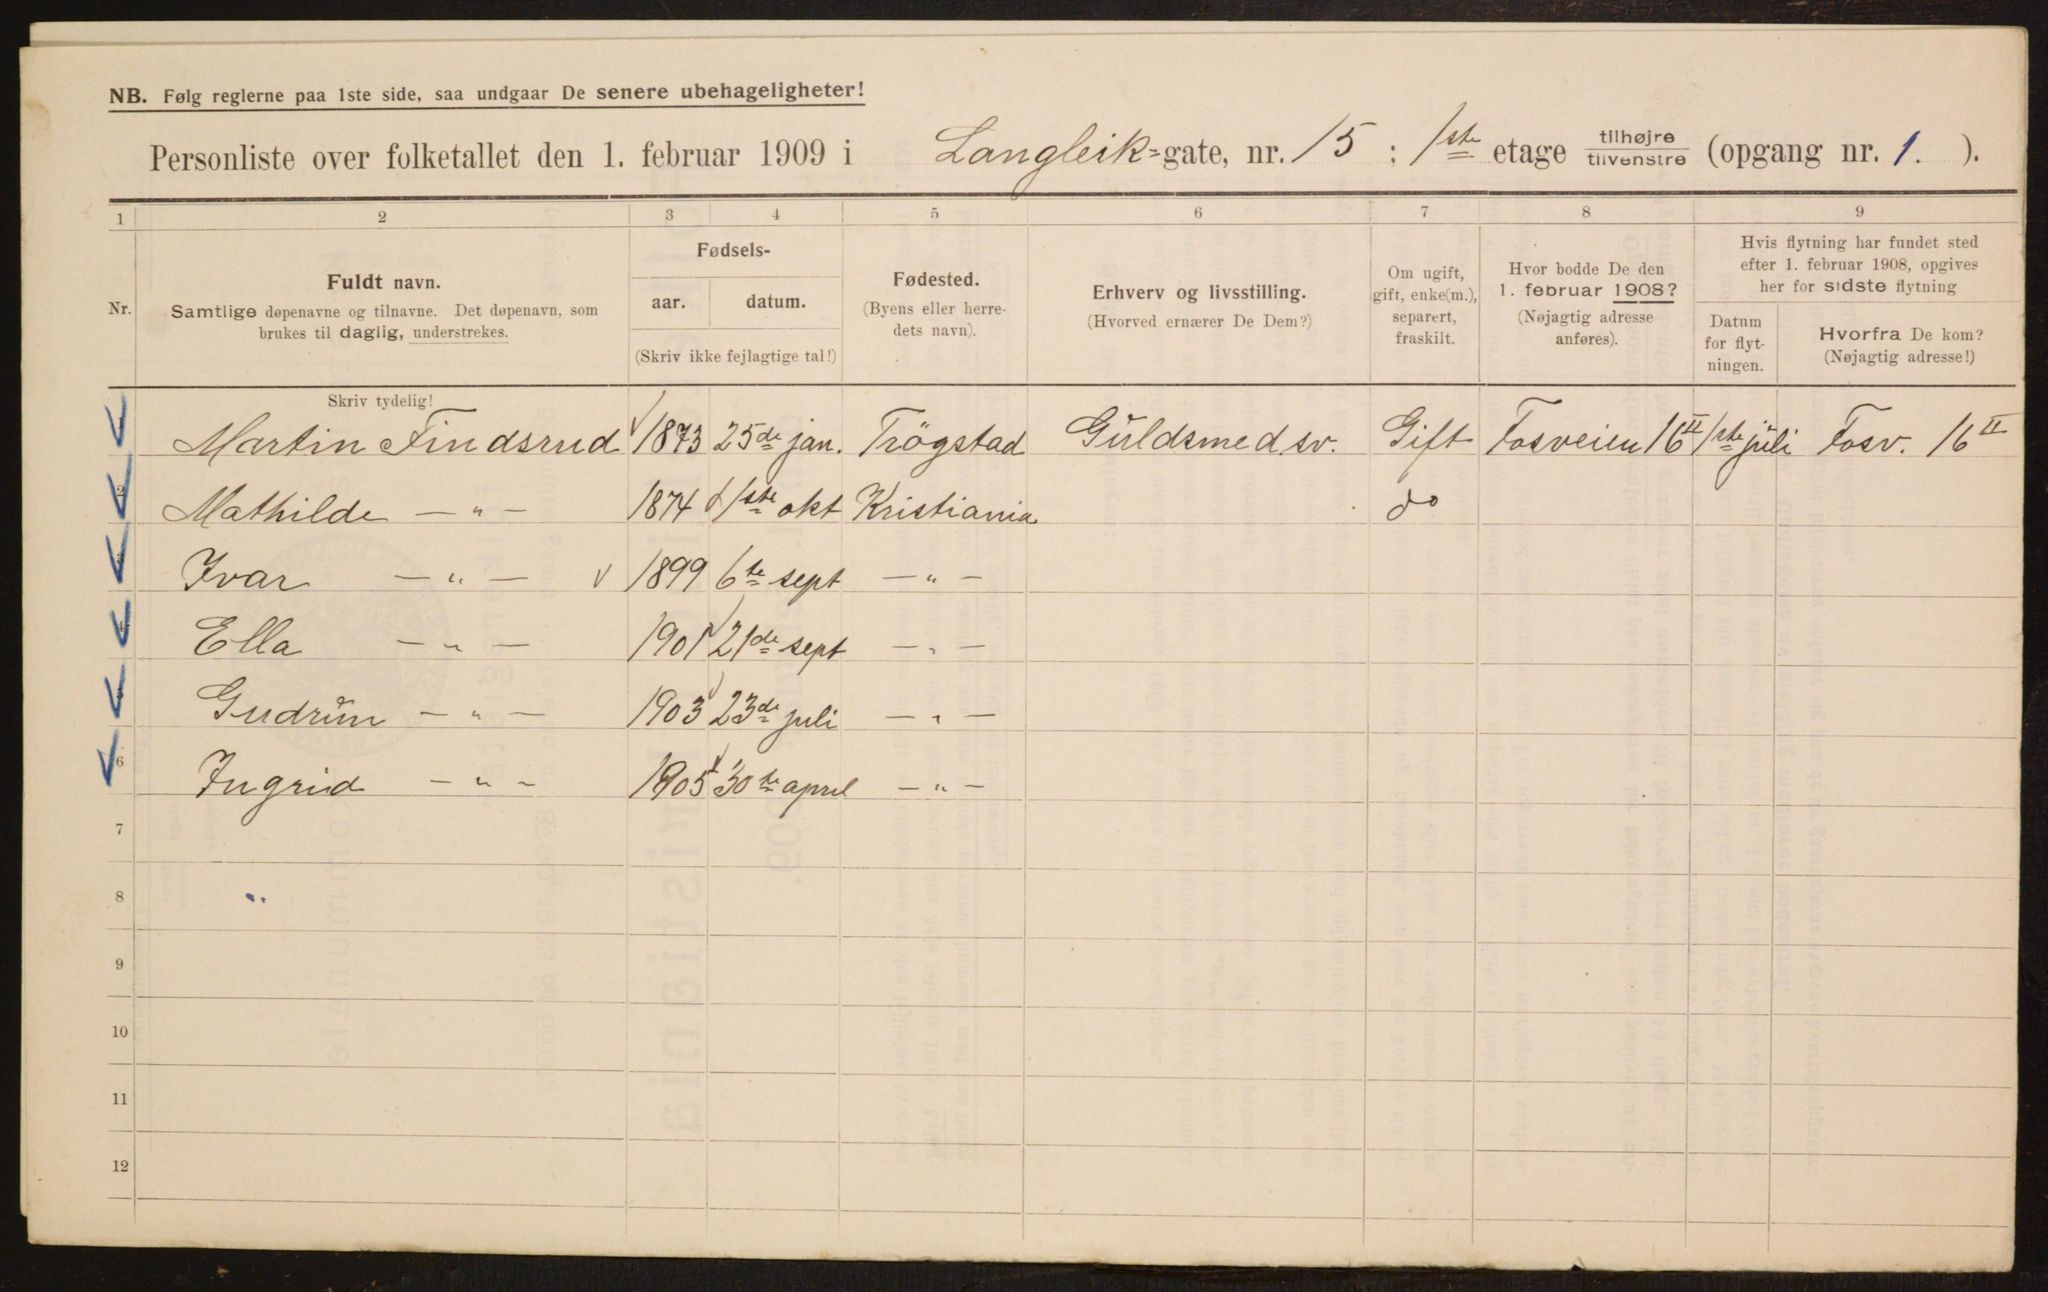 NB. Følg reglerne paa 1ste side, saa undgaar De senere ubehageligheter!
Personliste over folketallet den 1. februar 1909 i Langleik-gate, nr. 15 ; 1ste etage tilhøjre/tilvenstre (opgang nr. 1. ).
1 2 3 4 5 6 7 8 9
Nr.
Fuldt navn.
Samtlige døpenavne og tilnavne. Det døpenavn, som
brukes til daglig, understrekes.
Fødsels-
aar. datum.
(Skriv ikke fejlagtige tal!)
Fødested.
(Byens eller herre-
dets navn).
Erhverv og livsstilling.
(Hvorved ernærer De Dem?)
Om ugift,
gift, enke(m.),
separert,
fraskilt.
Hvor bodde De den
1. februar 1908?
(Nøjagtig adresse
anføres).
Hvis flytning har fundet sted
efter 1. februar 1908, opgives
her for sidste flytning
Datum
for flyt-
ningen.
Hvorfra De kom?
(Nøjagtig adresse!)
Skriv tydelig!
1 Martin Findsrud 1873 25de jan. Trögstad Guldsmed sv. Gift Fosveien 16 II 1ste juli Fosv. 16 II
2 Mathilde — " — 1874 1ste okt Kristiania do
3 Ivar — " — 1899 6te sept — " —
4 Ella — " — 1901 21de sept — " —
5 Gudrun — " — 1903 23de juli — " —
6 Ingrid — " — 1905 30te april — " —
7
8
9
10
11
12